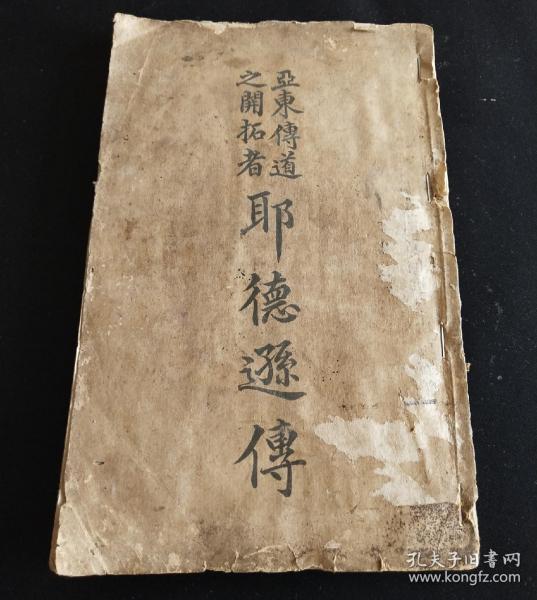 亞東傳道
之開拓者
耶德遜傳
孔夫子旧书网
www.kongfz.com